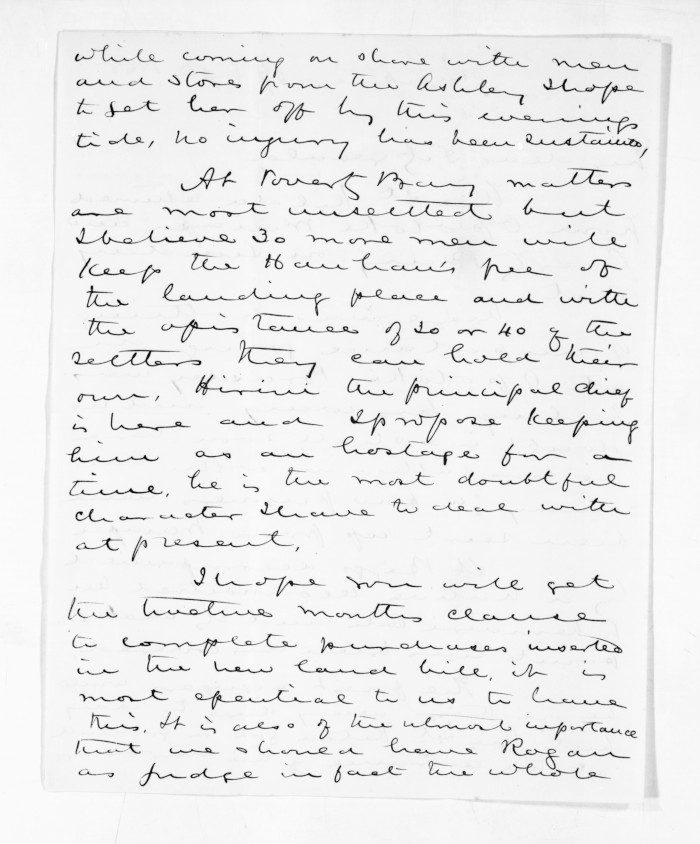 while coming on shore with men
and stores from the Ashley I hope
to get her off by this evenings
tide, no injury has been sustained,
At Poverty Bay matters
are most unsettled but
I believe 30 more men will
keep the Hauhau's free of
the landing place and with
the assistance of 30 or 40 of the
settlers they can hold their
own, Hirini the principal chief
is here and I propose keeping
him as an hostage for a
time, he is the most doubtful
character I have to deal with
at present,
I hope you will get
the twelve months clause
to complete purchases inserted
in the new land bill, it is
most essential to us to have
this. It is also of the utmost importance
that we should have Rogan
as judge in fact the whole